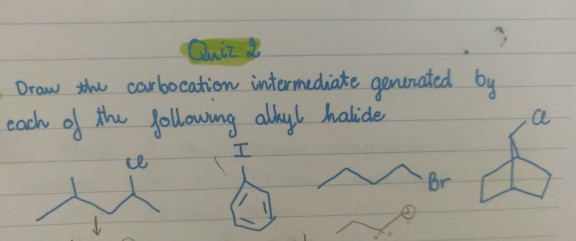 Quiz 2
Draw the carbocation intermediate generated by
each of the following alkyl halide
Cl I Br Cl